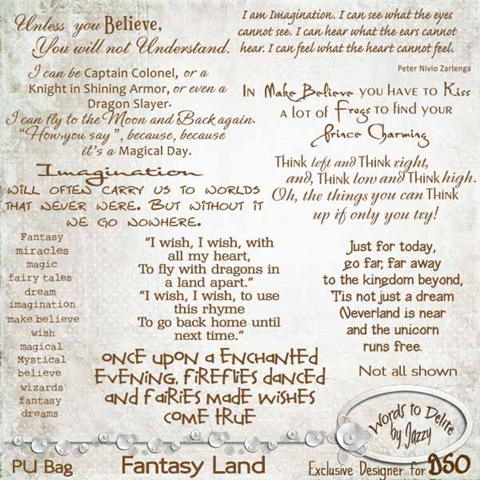 Unless you Believe,
You will not Understand.
I can be Captain Colonel, or a
Knight in Shining Armor, or even a
Dragon Slayer.
I can fly to the Moon and Back again.
"How you say", because, because
it's a Magical Day.
Imagination
will often carry us to worlds
that never were. But without it
we go nowhere.
I am Imagination. I can see what the eyes
cannot see. I can hear what the ears cannot
hear. I can feel what the heart cannot feel.
Peter Nivio Zarlenga
In Make Believe you have to Kiss
a lot of Frogs to find your
Prince Charming
Think left and Think right,
and, Think low and Think high.
Oh, the things you can Think
up if only you try!
Fantasy
miracles
magic
fairy tales
dream
imagination
make believe
wish
magical
Mystical
believe
wizards
fantasy
dreams
"I wish, I wish, with
all my heart,
To fly with dragons in
a land apart."
"I wish, I wish, to use
this rhyme
To go back home until
next time."
Just for today,
go far, far away
to the kingdom beyond,
'Tis not just a dream
Neverland is near
and the unicorn
runs free.
Not all shown
once upon a enchanted
evening, fireflies danced
and fairies made wishes
come true
Words to Delite
by Jazzy
PU Bag
Fantasy Land
Exclusive Designer for DSO